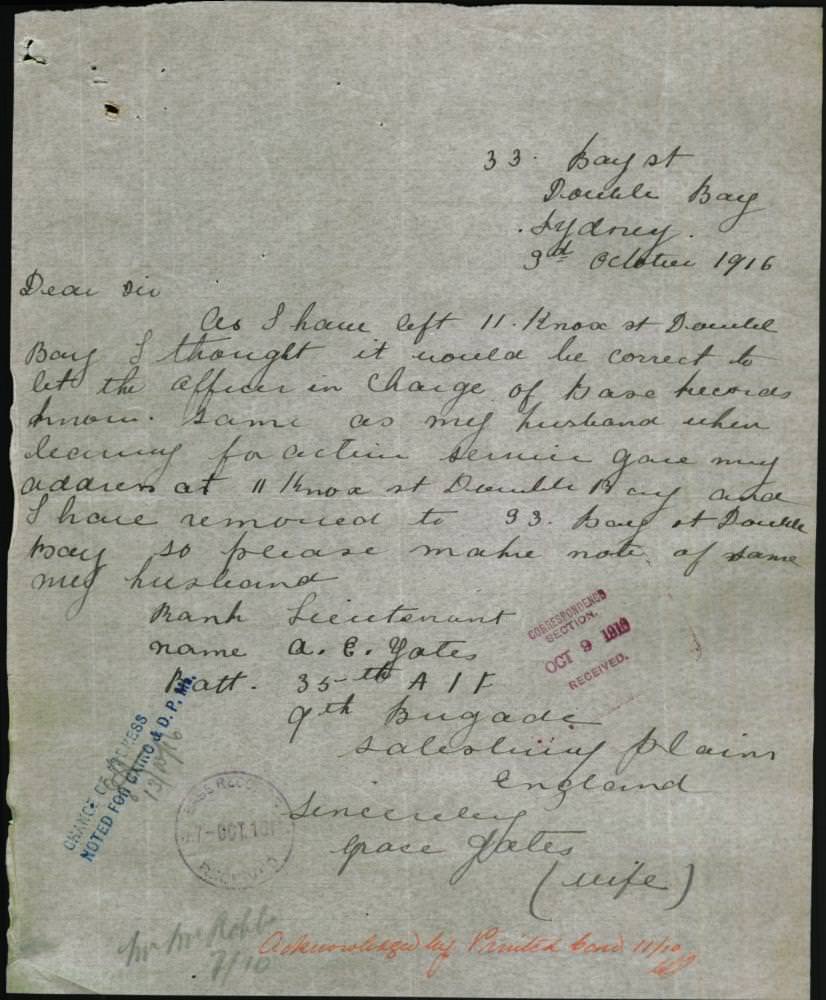 33. Bay st
Double Bay
Sydney.
3rd October 1916
Dear Sir
As I have left 11. Knox st Double
Bay I thought it would be correct to
let the officer in Charge of Base Records
know. Same as my husband when
leaving for active service gave my
address at 11 Knox st Double Bay and
I have removed to 33. Bay st Double
Bay so please make note of same
my husband
Rank Lieutenant
name A. E. Yates
Batt. 35th A I F
9th Brigade
Salisbury Plains
England
Sincerely
Grace Yates
(wife)
CORRESPONDENCE
SECTION.
OCT 9 1916
RECEIVED.
CHANGE OF ADDRESS
NOTED FOR CAIRO & D.P.
13/10/16
BASE RECORDS
7-OCT. 191
7/10
Acknowledged by Printed Card 11/10